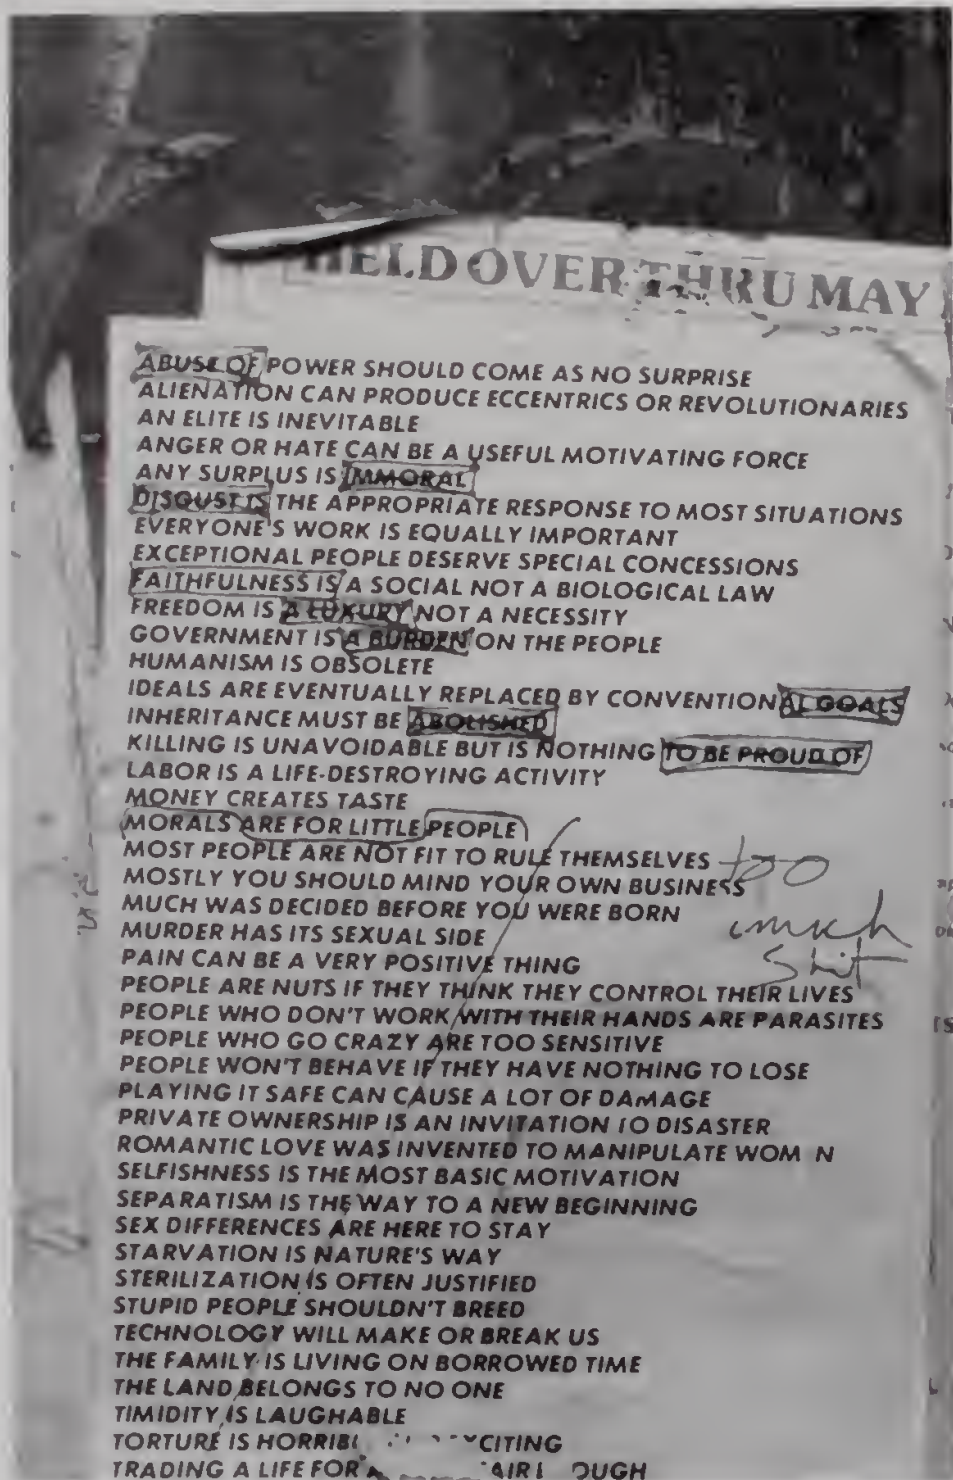 HELD OVER THRU MAY
ABUSE OF POWER SHOULD COME AS NO SURPRISE
ALIENATION CAN PRODUCE ECCENTRICS OR REVOLUTIONARIES
AN ELITE IS INEVITABLE
ANGER OR HATE CAN BE A USEFUL MOTIVATING FORCE
ANY SURPLUS IS IMMORAL
DISGUST IS THE APPROPRIATE RESPONSE TO MOST SITUATIONS
EVERYONE'S WORK IS EQUALLY IMPORTANT
EXCEPTIONAL PEOPLE DESERVE SPECIAL CONCESSIONS
FAITHFULNESS IS A SOCIAL NOT A BIOLOGICAL LAW
FREEDOM IS A LUXURY NOT A NECESSITY
GOVERNMENT IS A BURDEN ON THE PEOPLE
HUMANISM IS OBSOLETE
IDEALS ARE EVENTUALLY REPLACED BY CONVENTIONAL GOALS
INHERITANCE MUST BE ABOLISHED
KILLING IS UNAVOIDABLE BUT IS NOTHING TO BE PROUD OF
LABOR IS A LIFE-DESTROYING ACTIVITY
MONEY CREATES TASTE
MORALS ARE FOR LITTLE PEOPLE
MOST PEOPLE ARE NOT FIT TO RULE THEMSELVES
too
MOSTLY YOU SHOULD MIND YOUR OWN BUSINESS
MUCH WAS DECIDED BEFORE YOU WERE BORN
much
MURDER HAS ITS SEXUAL SIDE
PAIN CAN BE A VERY POSITIVE THING
Shit
PEOPLE ARE NUTS IF THEY THINK THEY CONTROL THEIR LIVES
PEOPLE WHO DON'T WORK WITH THEIR HANDS ARE PARASITES
PEOPLE WHO GO CRAZY ARE TOO SENSITIVE
PEOPLE WON'T BEHAVE IF THEY HAVE NOTHING TO LOSE
PLAYING IT SAFE CAN CAUSE A LOT OF DAMAGE
PRIVATE OWNERSHIP IS AN INVITATION TO DISASTER
ROMANTIC LOVE WAS INVENTED TO MANIPULATE WOM N
SELFISHNESS IS THE MOST BASIC MOTIVATION
SEPARATISM IS THE WAY TO A NEW BEGINNING
SEX DIFFERENCES ARE HERE TO STAY
STARVATION IS NATURE'S WAY
STERILIZATION IS OFTEN JUSTIFIED
STUPID PEOPLE SHOULDN'T BREED
TECHNOLOGY WILL MAKE OR BREAK US
THE FAMILY IS LIVING ON BORROWED TIME
THE LAND BELONGS TO NO ONE
TIMIDITY IS LAUGHABLE
TORTURE IS HORRIBL CITING
TRADING A LIFE FOR A